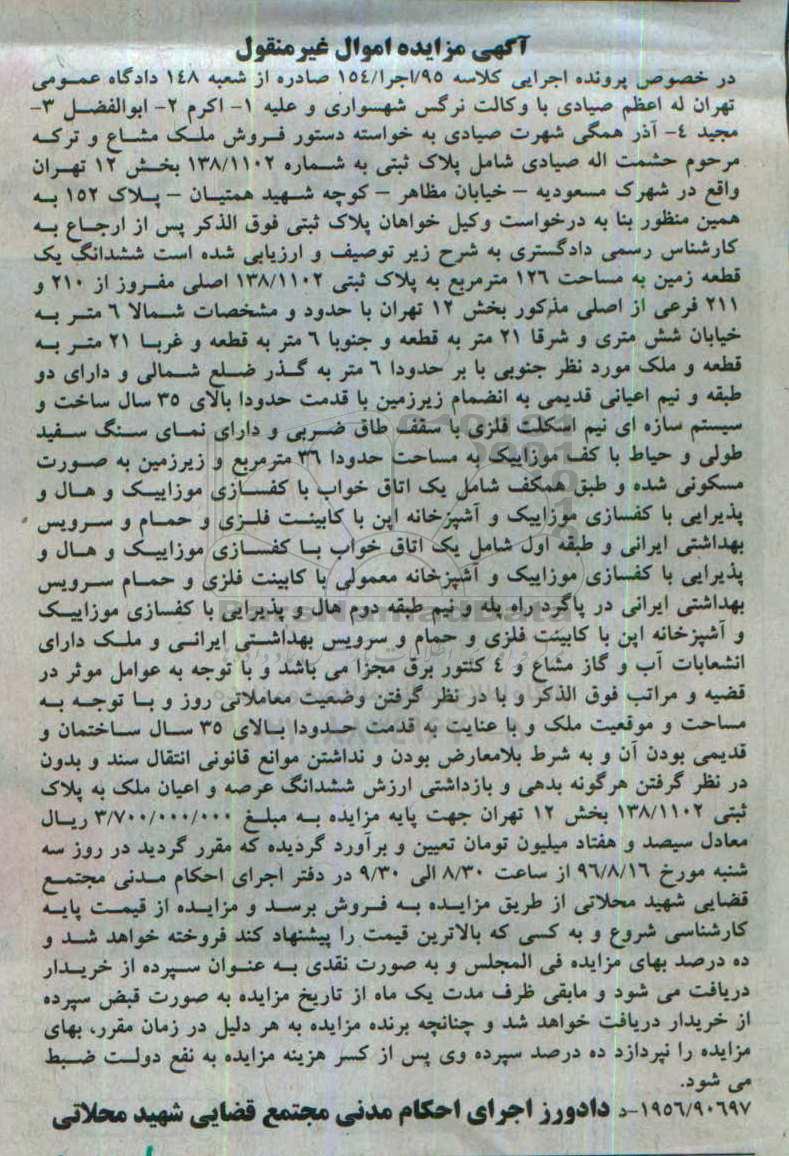 آگهی مزایده اموال غیرمنقول
در خصوص پرونده اجرایی کلاسه ٩٥/اجرا/١٥٤ صادره از شعبه ١٤٨ دادگاه عمومی
تهران له اعظم صیادی با وکالت نرگس شهسواری و علیه ١- اکرم ٢- ابوالفضل ٣-
مجید ٤- آذر همگی شهرت صیادی به خواسته دستور فروش ملک مشاع و ترکه
مرحوم حشمت اله صیادی شامل پلاک ثبتی به شماره ١٣٨/١١٠٢ بخش ١٢ تهران
واقع در شهرک مسعودیه – خیابان مظاهر – کوچه شهید همتیان – پلاک ١٥٢ به
همین منظور بنا به درخواست وکیل خواهان پلاک ثبتی فوق الذکر پس از ارجاع به
کارشناس رسمی دادگستری به شرح زیر توصیف و ارزیابی شده است ششدانگ یک
قطعه زمین به مساحت ١٢٦ مترمربع به پلاک ثبتی ١٣٨/١١٠٢ اصلی مفروز از ٢١٠ و
٢١١ فرعی از اصلی مذکور بخش ١٢ تهران با حدود و مشخصات شمالا ٦ متر به
خیابان شش متری و شرقا ٢١ متر به قطعه و جنوبا ٦ متر به قطعه و غربا ٢١ متر به
قطعه و ملک مورد نظر جنوبی با بر حدودا ٦ متر به گذر ضلع شمالی و دارای دو
طبقه و نیم اعیانی قدیمی به انضمام زیرزمین با قدمت حدودا بالای ٣٥ سال ساخت و
سیستم سازه ای نیم اسکلت فلزی با سقف طاق ضربی و دارای نمای سنگ سفید
طولی و حیاط با کف موزاییک به مساحت حدودا ٣٦ مترمربع و زیرزمین به صورت
مسکونی شده و طبق همکف شامل یک اتاق خواب با کفسازی موزاییک و هال و
پذیرایی با کفسازی موزاییک و آشپزخانه اپن با کابینت فلزی و حمام و سرویس
بهداشتی ایرانی و طبقه اول شامل یک اتاق خواب با کفسازی موزاییک و هال و
پذیرایی با کفسازی موزاییک و آشپزخانه معمولی با کابینت فلزی و حمام سرویس
بهداشتی ایرانی در پاگرد راه پله و نیم طبقه دوم هال و پذیرایی با کفسازی موزاییک
و آشپزخانه اپن با کابینت فلزی و حمام و سرویس بهداشتی ایرانی و ملک دارای
انشعابات آب و گاز مشاع و ٤ کنتور برق مجزا می باشد و با توجه به عوامل موثر در
قضیه و مراتب فوق الذکر و با در نظر گرفتن وضعیت معاملاتی روز و با توجه به
مساحت و موقعیت ملک و با عنایت به قدمت حدودا بالای ٣٥ سال ساختمان و
قدیمی بودن آن و به شرط بلامعارض بودن و نداشتن موانع قانونی انتقال سند و بدون
در نظر گرفتن هرگونه بدهی و بازداشتی ارزش ششدانگ عرصه و اعیان ملک به پلاک
ثبتی ١٣٨/١١٠٢ بخش ١٢ تهران جهت پایه مزایده به مبلغ ٣/٧٠٠/٠٠٠/٠٠٠ ریال
معادل سیصد و هفتاد میلیون تومان تعیین و برآورد گردیده که مقرر گردید در روز سه
شنبه مورخ ٩٦/٨/١٦ از ساعت ٨/٣٠ الی ٩/٣٠ در دفتر اجرای احکام مدنی مجتمع
قضایی شهید محلاتی از طریق مزایده به فروش برسد و مزایده از قیمت پایه
کارشناسی شروع و به کسی که بالاترین قیمت را پیشنهاد کند فروخته خواهد شد و
ده درصد بهای مزایده فی المجلس و به صورت نقدی به عنوان سپرده از خریدار
دریافت می شود و مابقی ظرف مدت یک ماه از تاریخ مزایده به صورت قبض سپرده
از خریدار دریافت خواهد شد و چنانچه برنده مزایده به هر دلیل در زمان مقرر، بهای
مزایده را نپردازد ده درصد سپرده وی پس از کسر هزینه مزایده به نفع دولت ضبط
می شود.
١٩٥٦/٩٠٦٩٧-د دادورز اجرای احکام مدنی مجتمع قضایی شهید محلاتی